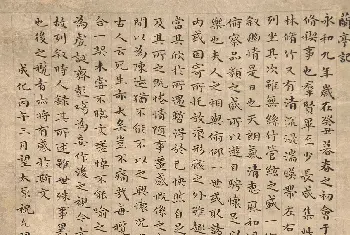 蘭亭記
永和九年歲在癸丑暮春之初會于
脩禊事也羣賢畢至少長咸集此
林脩竹又有清流激湍暎帶左右
列坐其次雖無絲竹管絃之盛一
敘幽情是日也天朗氣清惠風和
俯察品類之盛所以遊目騁懷足以
樂也夫人之相與俯仰一世或取諸
內或因寄所托放浪形骸之外雖趣
當其欣於所遇暫得於己快然自
及其所之既倦情隨事遷感慨係之
間以為陳迹猶不能不以之興懷況
古人云死生亦大矣豈不痛哉每攬
合一契未嘗不臨文嗟悼不能喻之
為虛誕齊彭殤為妄作後之視今
故列敘時人錄其所述雖世殊事異
也後之覽者亦將有感於斯文
成化丙午三月望太原祝允